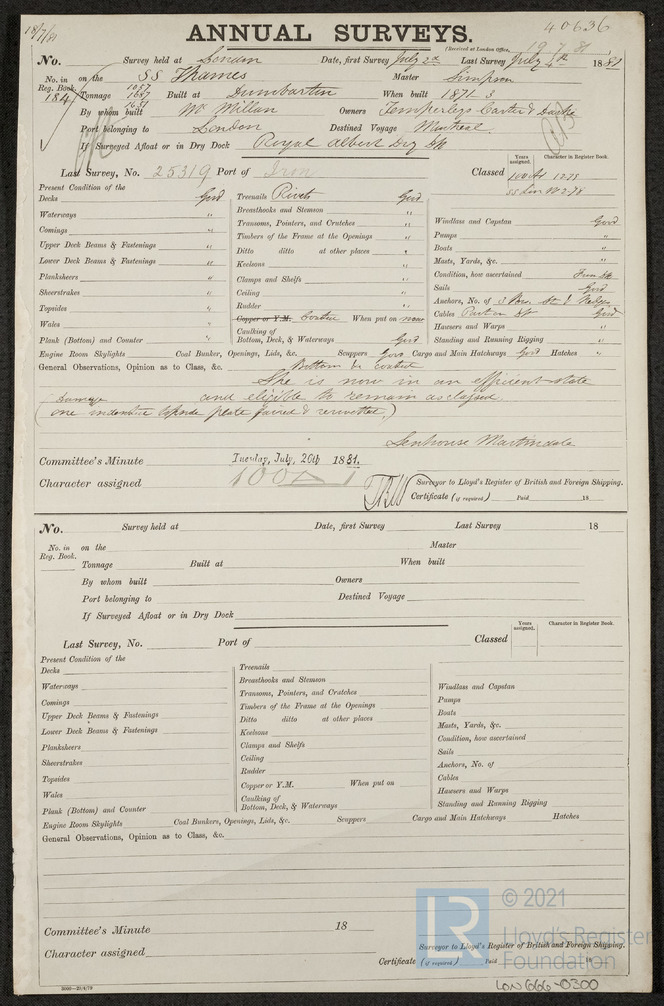 18/7/81
ANNUAL SURVEYS.
40636
(Received at London Office, 19.7.81
No. Survey held at London Date, first Survey July 2nd Last Survey July 1881
No. in Reg. Book. on the SS Thames Master Simpson
184 Tonnage Built at Dumbarton When built 1871 3
By whom built McMillan Owners Temperleys Carter & Darke
Port belonging to London Destined Voyage Montreal
If Surveyed Afloat or in Dry Dock Royal Albert Dry Dk
Years assigned. Character in Register Book.
Last Survey, No. 25319 Port of Iron Classed 100 A1 12.78
Present Condition of the
Decks Good
Waterways "
Comings "
Upper Deck Beams & Fastenings "
Lower Deck Beams & Fastenings "
Planksheers "
Sheerstrakes "
Topsides "
Wales "
Plank (Bottom) and Counter "
Treenails Rivets Good
Breasthooks and Stemson "
Transoms, Pointers, and Crutches "
Timbers of the Frame at the Openings "
Ditto ditto at other places "
Keelsons "
Clamps and Shelfs "
Ceiling "
Rudder "
Copper or Y.M. Coated When put on none
Caulking of Bottom, Deck, & Waterways Good
Windlass and Capstan Good
Pumps "
Boats "
Masts, Yards, &c. "
Condition, how ascertained From Dk
Sails Good
Anchors, No. of 3 Bow. St & Kedges
Cables Part on Dk Good
Hawsers and Warps "
Standing and Running Rigging "
Engine Room Skylights Coal Bunker, Openings, Lids, &c. Scuppers Good Cargo and Main Hatchways Good Hatches "
General Observations, Opinion as to Class, &c. Bottom be coated
She is now in an efficient state
and eligible to remain as classed.
Damage
(one indentive topside plate faired & rerivetted.)
Senhouse Martindale
Committee's Minute Tuesday, July, 20th 1881.
Character assigned 100 A 1
Surveyor to Lloyd's Register of British and Foreign Shipping.
Certificate (if required) Paid 18
No. Survey held at Date, first Survey Last Survey 18
No. in Reg. Book. on the Master
Tonnage Built at When built
By whom built Owners
Port belonging to Destined Voyage
If Surveyed Afloat or in Dry Dock
Years assigned. Character in Register Book.
Last Survey, No. Port of Classed
Present Condition of the
Decks
Waterways
Comings
Upper Deck Beams & Fastenings
Lower Deck Beams & Fastenings
Planksheers
Sheerstrakes
Topsides
Wales
Plank (Bottom) and Counter
Treenails
Breasthooks and Stemson
Transoms, Pointers, and Crutches
Timbers of the Frame at the Openings
Ditto ditto at other places
Keelsons
Clamps and Shelfs
Ceiling
Rudder
Copper or Y.M. When put on
Caulking of Bottom, Deck, & Waterways
Windlass and Capstan
Pumps
Boats
Masts, Yards, &c.
Condition, how ascertained
Sails
Anchors, No. of
Cables
Hawsers and Warps
Standing and Running Rigging
Engine Room Skylights Coal Bunkers, Openings, Lids, &c. Scuppers Cargo and Main Hatchways Hatches
General Observations, Opinion as to Class, &c.
Committee's Minute 18
Character assigned
Surveyor to Lloyd's Register of British and Foreign Shipping.
Certificate (if required) Paid 18
LR © 2021
Lloyd's Register
Foundation
LON666-0300